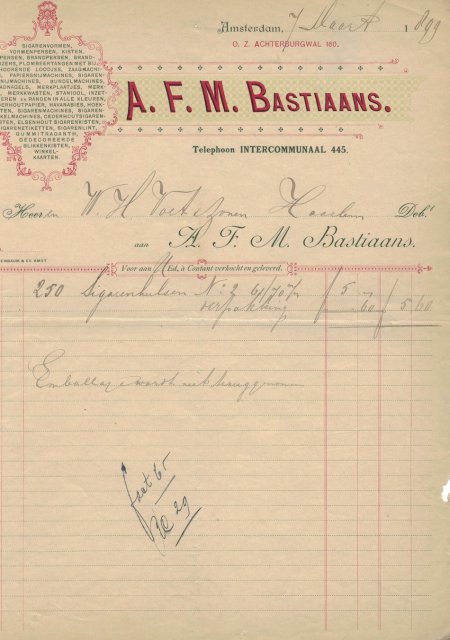 Amsterdam, 7 Maart 1899
O. Z. ACHTERBURGWAL 180.
SIGARENVORMEN,
VORMENPERSEN, KISTEN,
PERSEN, BRANDPERSEN, BRAND-
IJZERS, PLOMBEERTANGEN MET BIJ-
HOORENDE LOODJES, ZAAGMACHI-
PAPIERSNIJMACHINES, SIGAREN
SNIJMACHINES, BUNDELMACHINES,
NAGELS, MERKPLAATJES, MERK-
MERKKWASTEN, STANIOOL, INZET-
EREN EN RANDEN IN ALLE KLEUREN,
ERHOUTPAPIER, HAVANABIES, HOEK-
TEN, SIGARENMACHINES, SIGAREN-
KELMACHINES, CEDERHOUTSIGAREN-
STEN, ELSENHOUT SIGARENKISTEN,
SIGARENETIKETTEN, SIGARENLINT,
GUMMITRAGANTH,
GEDECOREERDE
BLIKKENKISTEN,
WINKEL-
KAARTEN.
A. F. M. BASTIAANS.
Telephoon INTERCOMMUNAAL 445.
Heeren W. H. Voet & Zonen Haarlem Deb.t
aan A. F. M. Bastiaans.
Voor aan U Ed. a Contant verkocht en geleverd.
250 Sigarenhulsen No 2 61/70 / 5
verpakking 60 / 5 60
Emballage wordt niet teruggenomen